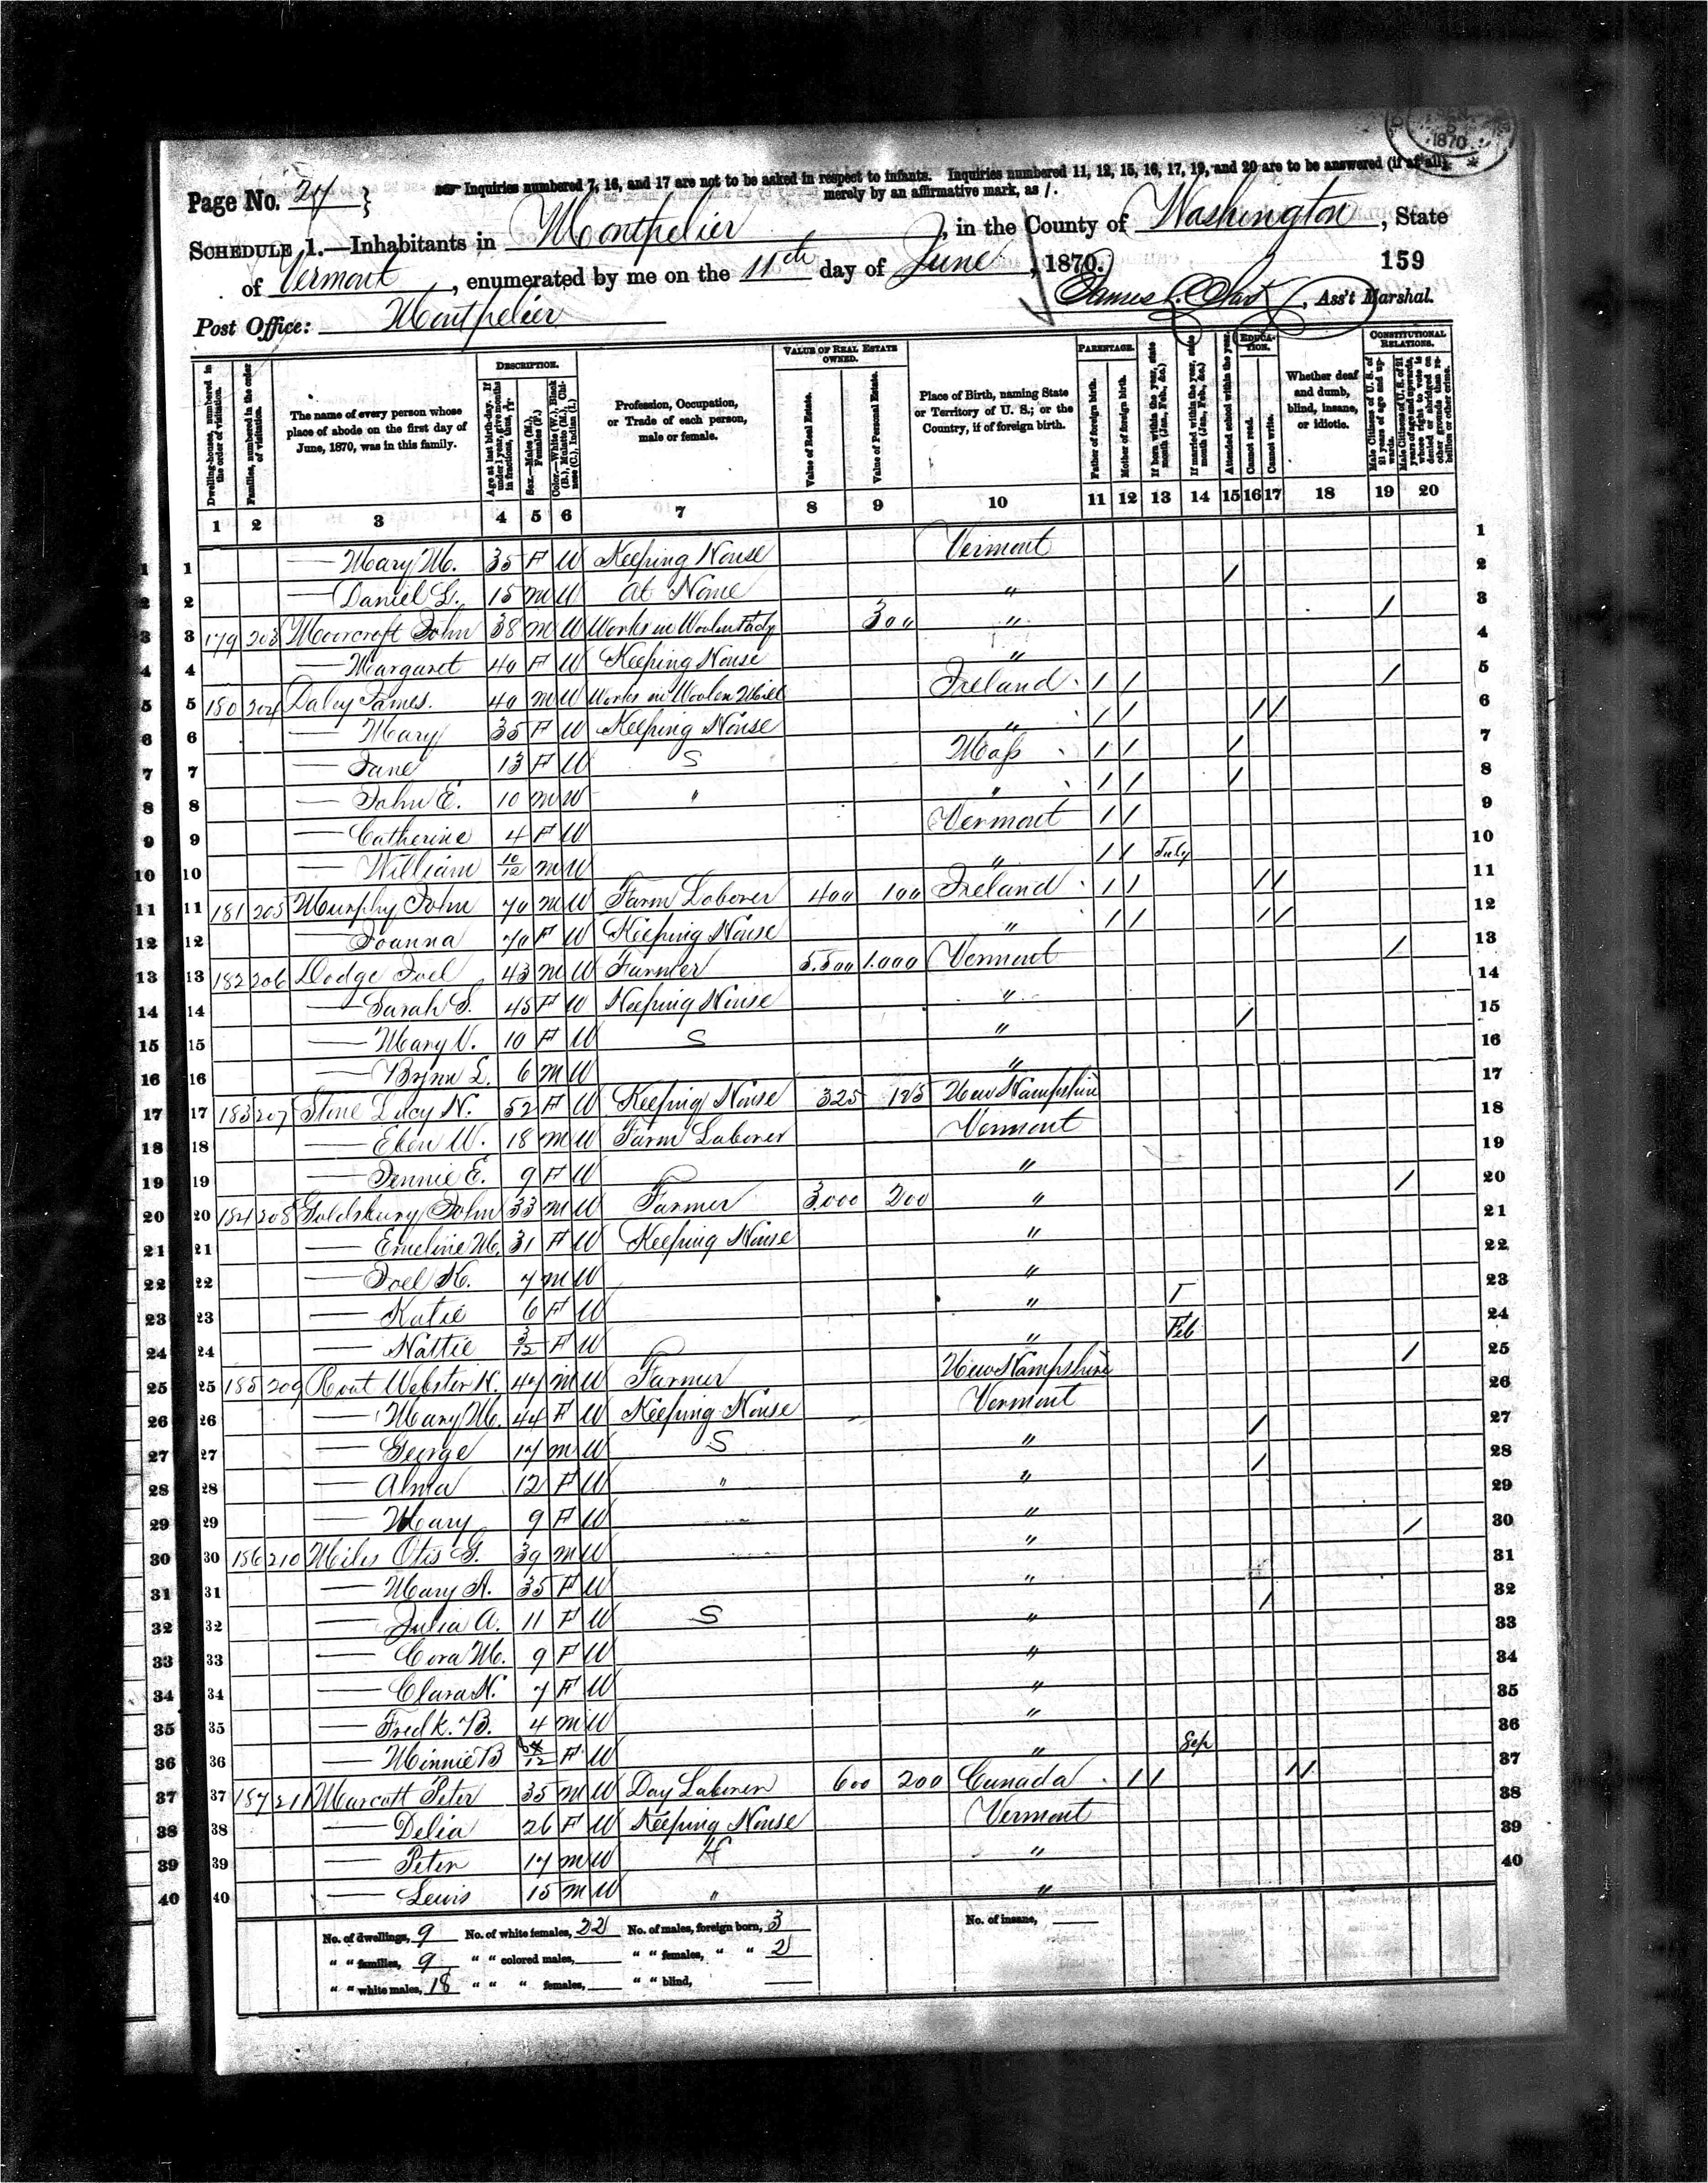 1870
Inquiries numbered 7, 16, and 17 are not to be asked in respect to infants. Inquiries numbered 11, 12, 15, 16, 17, 19, and 20 are to be answered (if at all)
merely by an affirmative mark, as /.
Page No. 24
SCHEDULE 1.—Inhabitants in Montpelier, in the County of Washington, State
of Vermont, enumerated by me on the 11th day of June, 1870. 159
Post Office: Montpelier James, Ass't Marshal.
Dwelling-houses, numbered in the order of visitation.
Families, numbered in the order of visitation.
The name of every person whose place of abode on the first day of June, 1870, was in this family.
DESCRIPTION.
Age at last birth-day. If under 1 year, give months in fractions, thus, 3/12
Sex.—Males (M.), Females (F.)
Color.—White (W.), Black (B.), Mulatto (M.), Chinese (C.), Indian (I.)
Profession, Occupation, or Trade of each person, male or female.
VALUE OF REAL ESTATE OWNED.
Value of Real Estate.
Value of Personal Estate.
Place of Birth, naming State or Territory of U. S.; or the Country, if of foreign birth.
PARENTAGE.
Father of foreign birth.
Mother of foreign birth.
If born within the year, state month (Jan., Feb., &c.)
If married within the year, state month (Jan., Feb., &c.)
Attended school within the year.
EDUCATION.
Cannot read.
Cannot write.
Whether deaf and dumb, blind, insane, or idiotic.
CONSTITUTIONAL RELATIONS.
Male Citizens of U. S. of 21 years of age and upwards.
Male Citizens of U. S. of 21 years of age and upwards, whose right to vote is denied or abridged on other grounds than rebellion or other crime.
1 2 3 4 5 6 7 8 9 10 11 12 13 14 15 16 17 18 19 20
1 1 — Mary M. 35 F W Keeping House Vermont 1
2 2 — Daniel L. 15 M W At Home " / 2
3 3 179 203 Moorcroft John 38 M W Works in Woolen 300 " / 3
4 4 — Margaret 40 F W Keeping House " 4
5 5 180 204 Daley James. 40 M W Works in Woolen Mill Ireland / / / 5
6 6 — Mary 35 F W Keeping House " / / / / 6
7 7 — Jane 13 F W S Mass / / / 7
8 8 — John E. 10 M W " " / / / 8
9 9 — Catherine 4 F W Vermont / / 9
10 10 — William 10/12 M W " / / July 10
11 11 181 205 Murphy John 70 M W Farm Laborer 400 100 Ireland / / / / 11
12 12 — Joanna 70 F W Keeping House " / / / / 12
13 13 182 206 Dodge Joel 43 M W Farmer 5.500 1.000 Vermont / 13
14 14 — Sarah S. 45 F W Keeping House " 14
15 15 — Mary V. 10 F W S " / 15
16 16 — L. 6 M W " 16
17 17 183 207 Stone Lucy N. 52 F W Keeping House 325 125 New Hampshire 17
18 18 — Eben W. 18 M W Farm Laborer Vermont 18
19 19 — Jennie E. 9 F W " 19
20 20 184 208 Goldsbury John 33 M W Farmer 3.000 200 " / 20
21 21 — Emeline M. 31 F W Keeping House " 21
22 22 — Joel K. 7 M W " 22
23 23 — Katie 6 F W " 23
24 24 — Hattie 3/12 F W " Feb 24
25 25 185 209 Root Webster H. 47 M W Farmer New Hampshire / 25
26 26 — Mary M. 44 F W Keeping House Vermont 26
27 27 — George 17 M W S " / 27
28 28 — Alma 12 F W " " / 28
29 29 — Mary 9 F W " 29
30 30 186 210 Miles Otis G. 39 M W " / 30
31 31 — Mary A. 35 F W " 31
32 32 — Julia A. 11 F W S " / 32
33 33 — Cora M. 9 F W " 33
34 34 — Clara H. 7 F W " 34
35 35 — Fred k. B. 4 M W " 35
36 36 — Minnie B /12 F W " Sep 36
37 37 187 211 Marcott Peter 35 M W Day Laborer 600 200 Canada / / / / 37
38 38 — Delia 26 F W Keeping House Vermont 38
39 39 — Peter 17 M W " 39
40 40 — Lewis 15 M W " " 40
No. of dwellings, 9 No. of white females, 22 No. of males, foreign born, 3 No. of insane,
" " families, 9 " " colored males, " " females, " " 2
" " white males, 18 " " " females, " " blind,